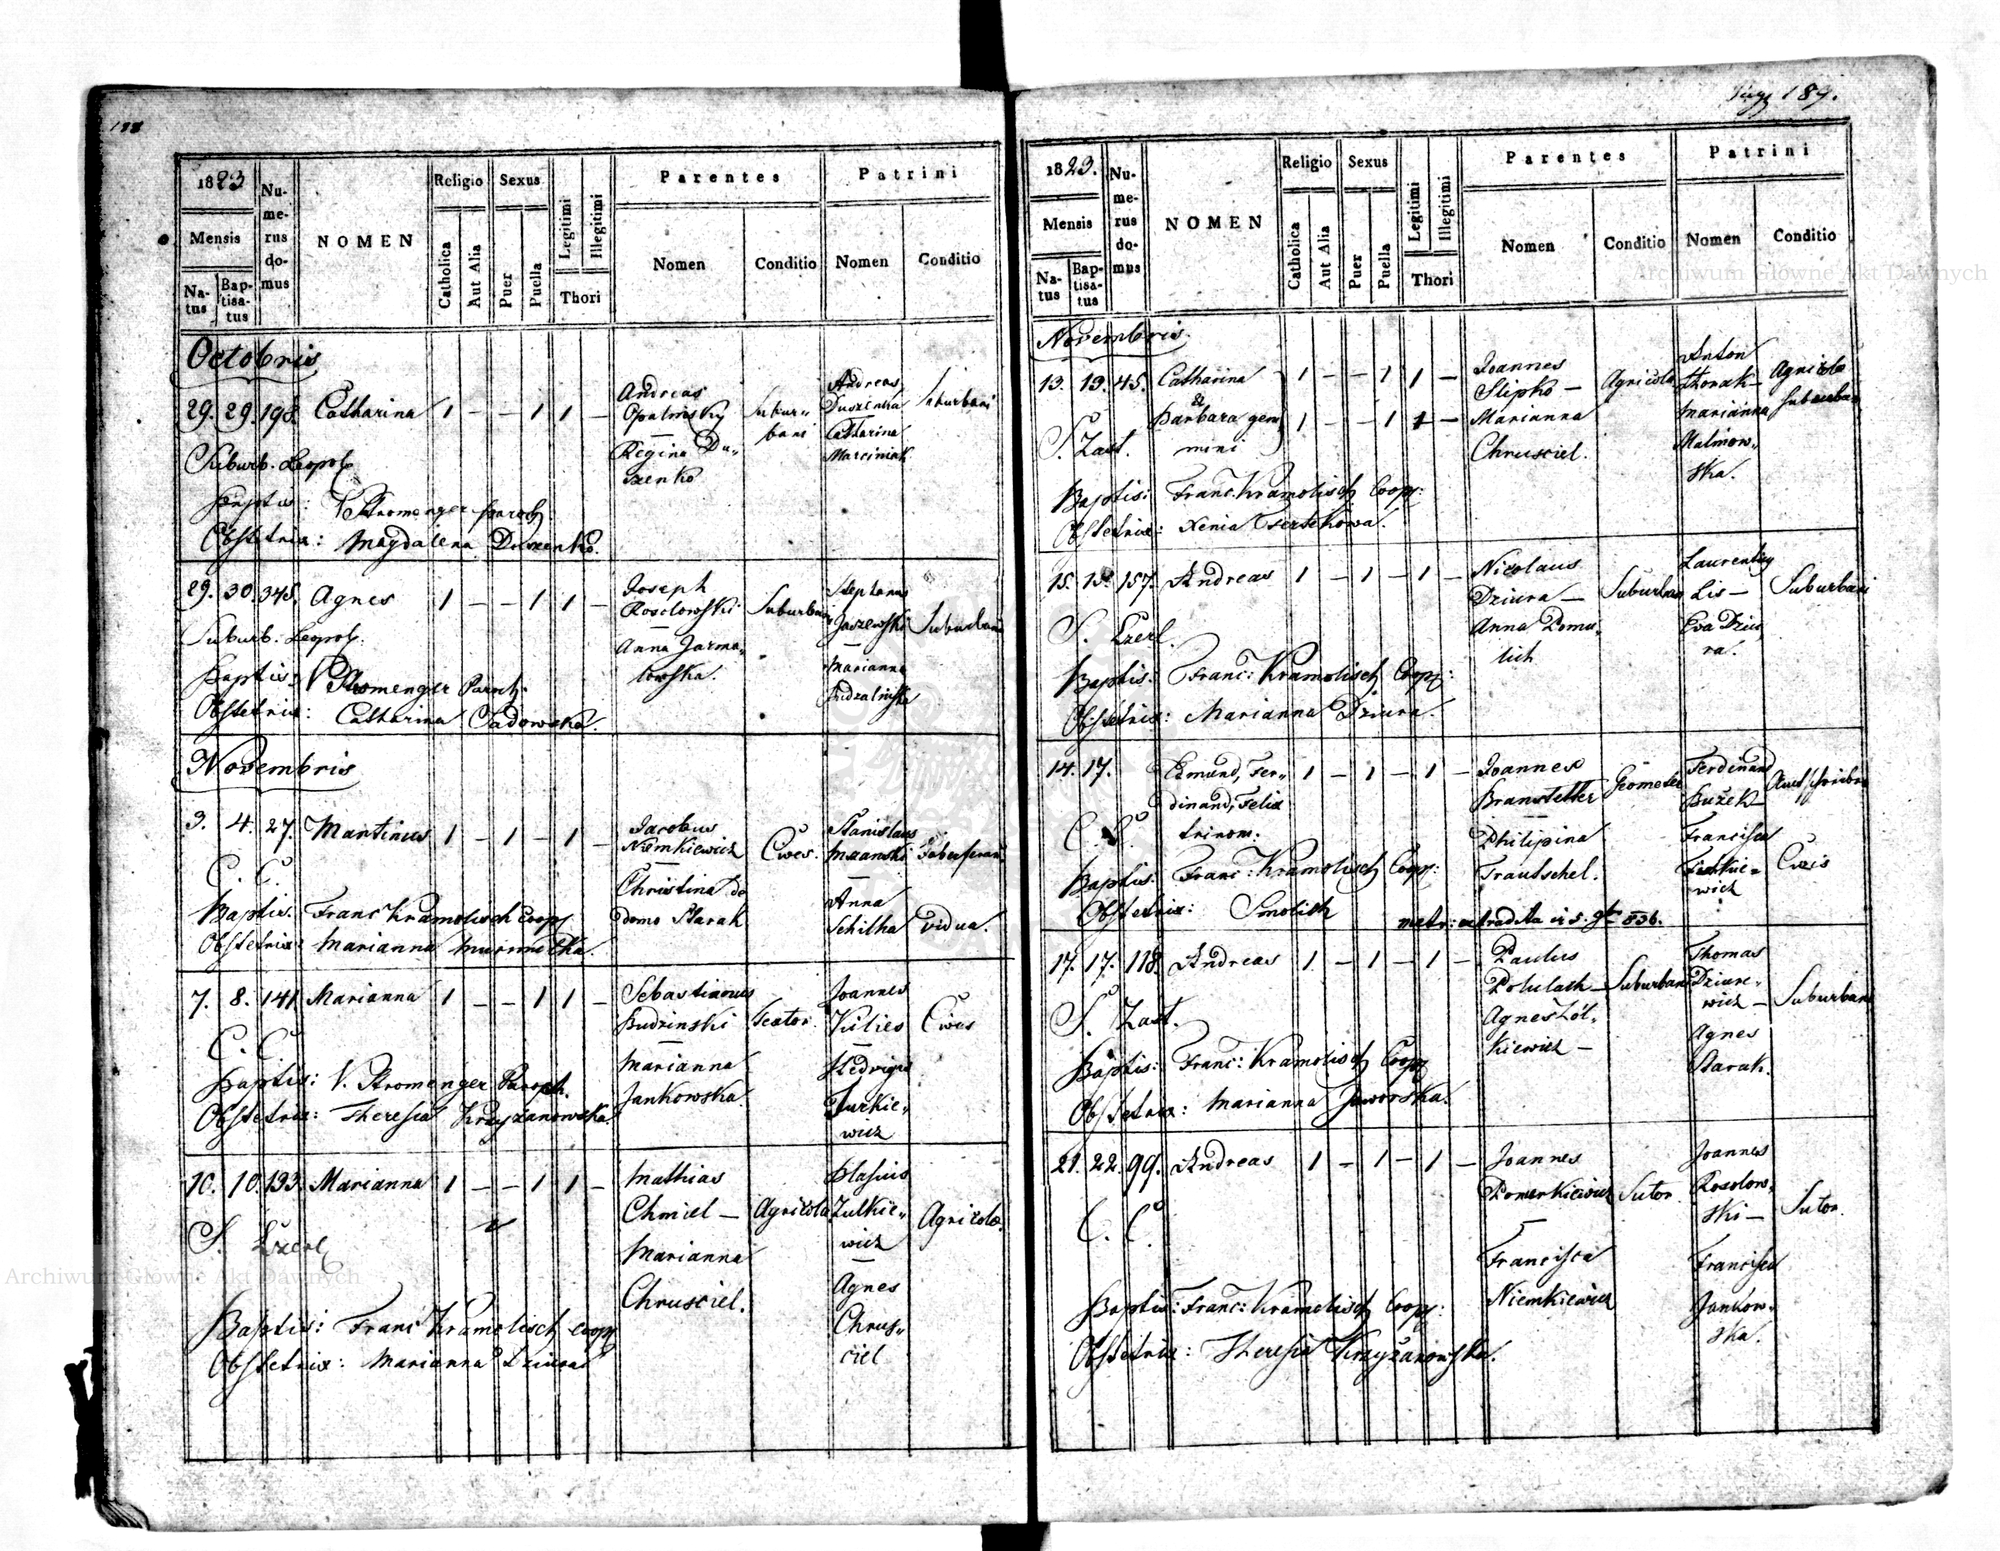 188
1823
Mensis
Natus
Baptisatus
Numerus domus
NOMEN
Religio
Catholica
Aut Alia
Sexus
Puer
Puella
Legitimi
Illegitimi
Thori
Parentes
Nomen
Conditio
Patrini
Nomen
Conditio
Octobris
29. 29. 198. Catharina 1 – – 1 1 –
Andreas
Opalinsky
–
Regina Du„
szenko
Subur„
bani
Andreas
Duszenko
Catharina
Marciniak
Suburbani
Suburb. Leopol.
Baptis: V. Stromenger paroch.
Obstetrix: Magdalena Duszenko.
29. 30. 345. Agnes 1 – – 1 1 –
Joseph
Rosolowski
–
Anna Jarmo„
lowska.
Suburbani
Stephanus
Jaszewski
–
Marianna
Suburbani
Suburb. Leopol.
Baptis: V. Stromenger Paroch.
Obstetrix: Catharina Sadowska.
Novembris
3. 4. 27. Martinus 1 – 1 – 1 –
Jacobus
Niemkiewicz
–
Christina de
domo Starak
Cives.
Stanislaus
–
Anna
Schilka
vidua.
C. C.
Baptis. Franc Kramolisch Coop.
Obstetrix: Marianna
7. 8. 141. Marianna 1 – – 1 1 –
Sebastianus
Budzinski
–
Marianna
Jankowska.
Textor.
Joannes
Kulies
–
Hedvigis
Turkie„
wicz
Cives
C. C.
Baptis: V. Stromenger Paroch.
Obstetrix: Theresia Krzyzanowska.
10. 10. 193. Marianna 1 – – 1 1 –
Mathias
Chmiel –
Marianna
Chrusciel.
Agricola
Blasius
Zulkie„
wicz
–
Agnes
Chrus„
ciel
Agricola.
S. Ezerl
Baptis: Franc Kramolisch coop
Obstetrix: Marianna Dziura
189.
1823.
Mensis
Natus
Baptisatus
Numerus domus
NOMEN
Religio
Catholica
Aut Alia
Sexus
Puer
Puella
Legitimi
Illegitimi
Thori
Parentes
Nomen
Conditio
Patrini
Nomen
Conditio
Novembris.
13. 13. 45. Catharina 1 – – 1 1 –
&
Barbara gem„ 1 – – 1 1 –
mini
Joannes
Slipko –
Marianna
Chrusciel.
Agricola
Anton
Marianna
Malinow„
ska.
Agricola
Suburban
S. Zast.
Baptis: Franc. Kramolisch Coop:
Obstetrix: Xenia
15. 15. 157. Andreas 1 – 1 – 1 –
Nicolaus
Dziura –
Anna
Suburban
Laurenty
Lis –
Eva Dziu
ra.
Suburbani
S. Ezerl.
Baptis: Franc: Kramolisch Coop:
Obstetrix: Marianna Dziura.
14. 17. Edmund, Fer„ 1 – 1 – 1 –
dinand, Felix
trinom.
Joannes
Branstetter
Philipina
Trautschel.
Ferdinand
Bužek –
Francisca
wicz
Civis
C. C.
Baptis: Franc: Kramolisch Coop:
Obstetrix: Smolik
17. 17. 118. Andreas 1 – 1 – 1 –
Paulus
Agnes Zol„
kiewicz –
Suburbani
Thomas
Dziure„
wicz –
Agnes
Starak.
Suburbani
S. Zast.
Baptis: Franc: Kramolisch Coop
Obstetrix: Marianna Jaworska.
21. 22. 99. Andreas 1 – 1 – 1 –
Joannes
–
Francisca
Niemkiewicz
Sutor.
Joannes
Rosolow„
ski –
Francisca
Jankow„
ska.
Sutor.
C. C.
Baptis: Franc: Kramolisch Coop:
Obstetrix: Theresia Krzyżanowska.
Archiwum Główne Akt Dawnych
Archiwum Główne Akt Dawnych